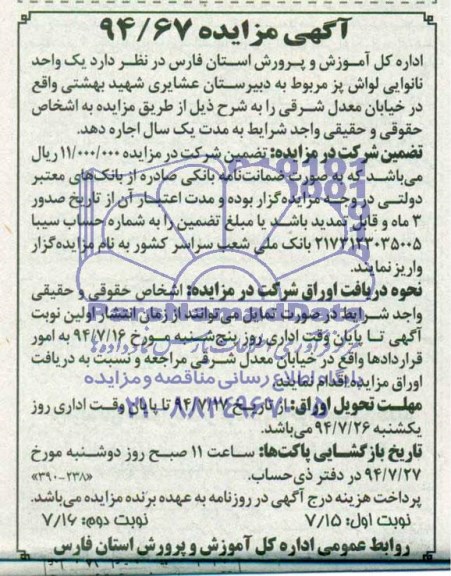 آگهی مزایده ۹۴/۶۷
اداره کل آموزش و پرورش استان فارس در نظر دارد یک واحد
نانوایی لواش پز مربوط به دبیرستان عشایری شهید بهشتی واقع
در خیابان معدل شرقی را به شرح ذیل از طریق مزایده به اشخاص
حقوقی و حقیقی واجد شرایط به مدت یک سال اجاره دهد.
تضمین شرکت در مزایده: تضمین شرکت در مزایده ۱۱/۰۰۰/۰۰۰ ریال
می‌باشد که به صورت ضمانت‌نامه بانکی صادره از بانک‌های معتبر
دولتی در وجه مزایده‌گزار بوده و مدت اعتبار آن از تاریخ صدور
۳ ماه و قابل تمدید باشد یا مبلغ تضمین را به شماره حساب سیبا
۲۱۷۳۱۲۳۰۳۵۰۰۵ بانک ملی شعب سراسر کشور به نام مزایده‌گزار
واریز نمایند.
نحوه دریافت اوراق شرکت در مزایده: اشخاص حقوقی و حقیقی
واجد شرایط در صورت تمایل می‌توانند از زمان انتشار اولین نوبت
آگهی تا پایان وقت اداری روز پنج‌شنبه مورخ ۹۴/۷/۱۶ به امور
قراردادها واقع در خیابان معدل شرقی مراجعه و نسبت به دریافت
اوراق مزایده اقدام نمایند.
پایگاه اطلاع رسانی مناقصه و مزایده
مهلت تحویل اوراق: از تاریخ تا پایان وقت اداری روز
یکشنبه ۹۴/۷/۲۶ می‌باشد.
تاریخ بازگشایی پاکت‌ها: ساعت ۱۱ صبح روز دوشنبه مورخ
۹۴/۷/۲۷ در دفتر ذی‌حساب. «۳۹۰-۲۳۸»
پرداخت هزینه درج آگهی در روزنامه به عهده برنده مزایده می‌باشد.
نوبت اول: ۷/۱۵ نوبت دوم: ۷/۱۶
روابط عمومی اداره کل آموزش و پرورش استان فارس